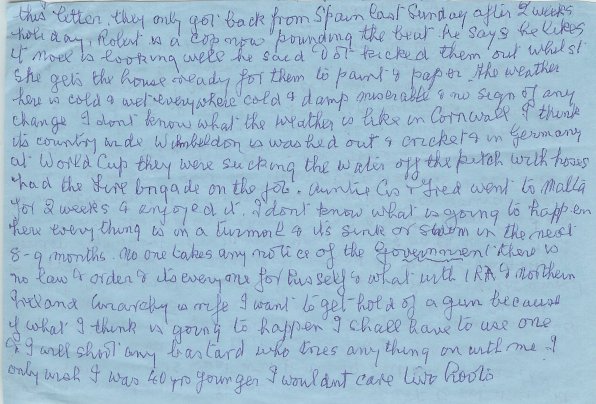 this letter. they only got back from Spain last Sunday after 2 weeks
holiday, Robert is a cop now pounding the beat he says he likes
it more is looking well he said Dot kicked them out whilst
she gets the house ready for them to paint & paper. the weather
here is cold & wet everywhere cold & damp miserable & no sign of any
change I dont know what the weather is like in Cornwall I think
its country wide Wimbeldon is washed out & cricket & in Germany
at World Cup they were sucking the water off the pitch with hoses
had the Fire brigade on the job. Auntie Cis & Fred went to Malta
for 2 weeks & enjoyed it. I dont know what is going to happen
here everything is in a turmoil & its sink or swim in the next
8-9 months. No one takes any notice of the Government there is
no law & order & its everyone for hisself & what with IRA & Northern
Ireland Anarchy is rife I want to get hold of a gun because
if what I think is going to happen I shall have to use one
& I will shoot any bastard who tries anything on with me. I
only wish I was 40 yrs younger I wouldnt care two hoots